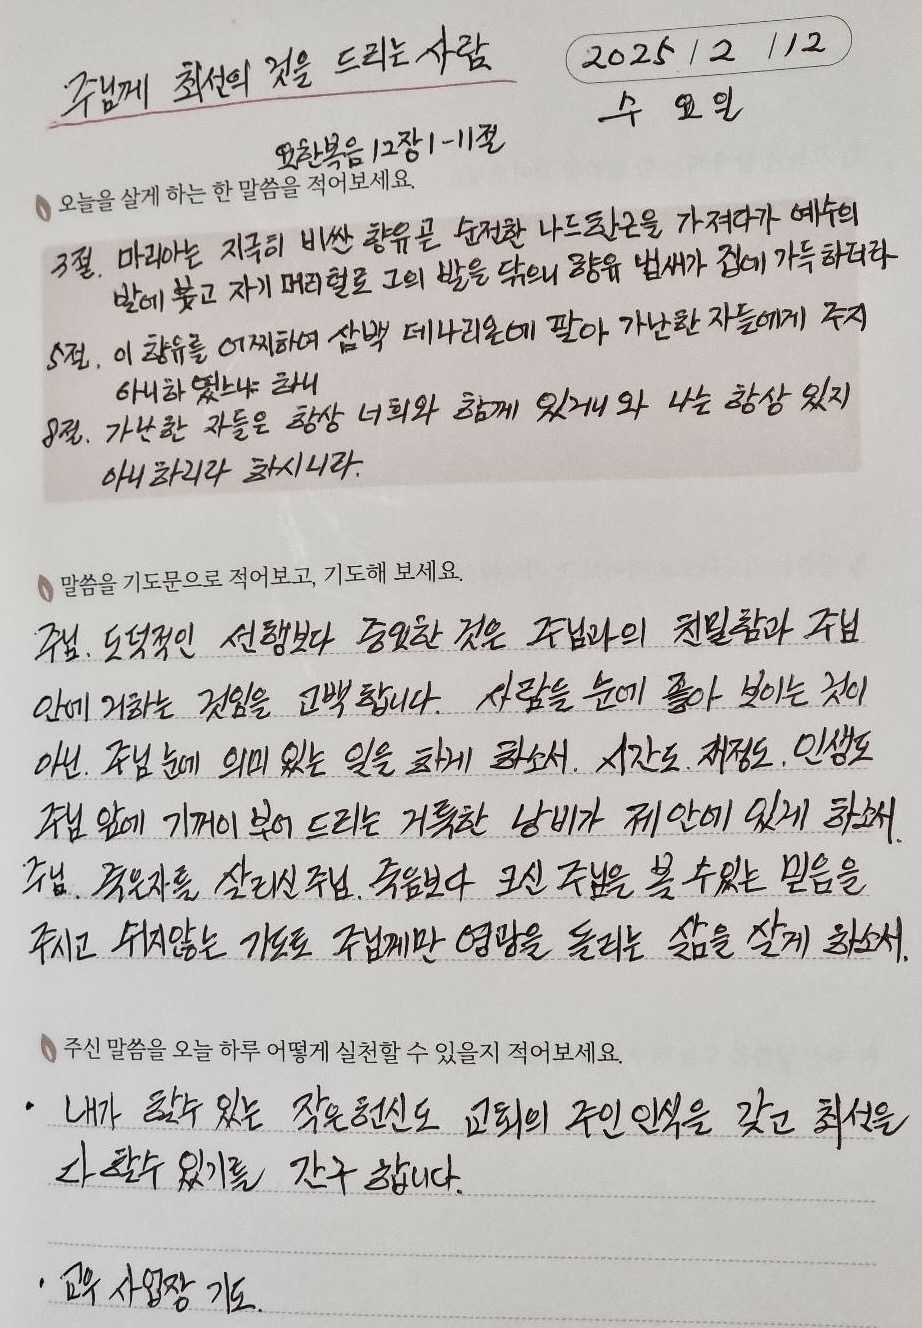 주님께 최선의 것을 드리는 사람
2025/2/12
수요일
요한복음 12장 1-11절
오늘을 살게 하는 한 말씀을 적어보세요.
3절. 마리아는 지극히 비싼 향유 곧 순전한 나드 한근을 가져다가 예수의
발에 붓고 자기 머리털로 그의 발을 닦으니 향유 냄새가 집에 가득하더라
5절. 이 향유를 어찌하여 삼백 데나리온에 팔아 가난한 자들에게 주지
아니하였느냐 하니
8절. 가난한 자들은 항상 너희와 함께 있거니와 나는 항상 있지
아니하리라 하시니라.
말씀을 기도문으로 적어보고, 기도해 보세요.
주님. 도덕적인 선행보다 중요한 것은 주님과의 친밀함과 주님
안에 거하는 것임을 고백합니다. 사람들 눈에 좋아 보이는 것이
아닌. 주님 눈에 의미 있는 일을 하게 하소서. 시간도. 재정도. 인생도
주님 앞에 기꺼이 부어 드리는 거룩한 낭비가 제 안에 있게 하소서.
주님. 죽은자를 살리신 주님. 죽음보다 크신 주님을 볼 수 있는 믿음을
주시고 쉬지않는 기도로 주님께만 영광을 돌리는 삶을 살게 하소서.
주신 말씀을 오늘 하루 어떻게 실천할 수 있을지 적어보세요.
• 내가 할수 있는 작은 헌신도 교회의 주인 인식을 갖고 최선을
다 할수 있기를 간구 합니다.
• 교우 사업장 기도.